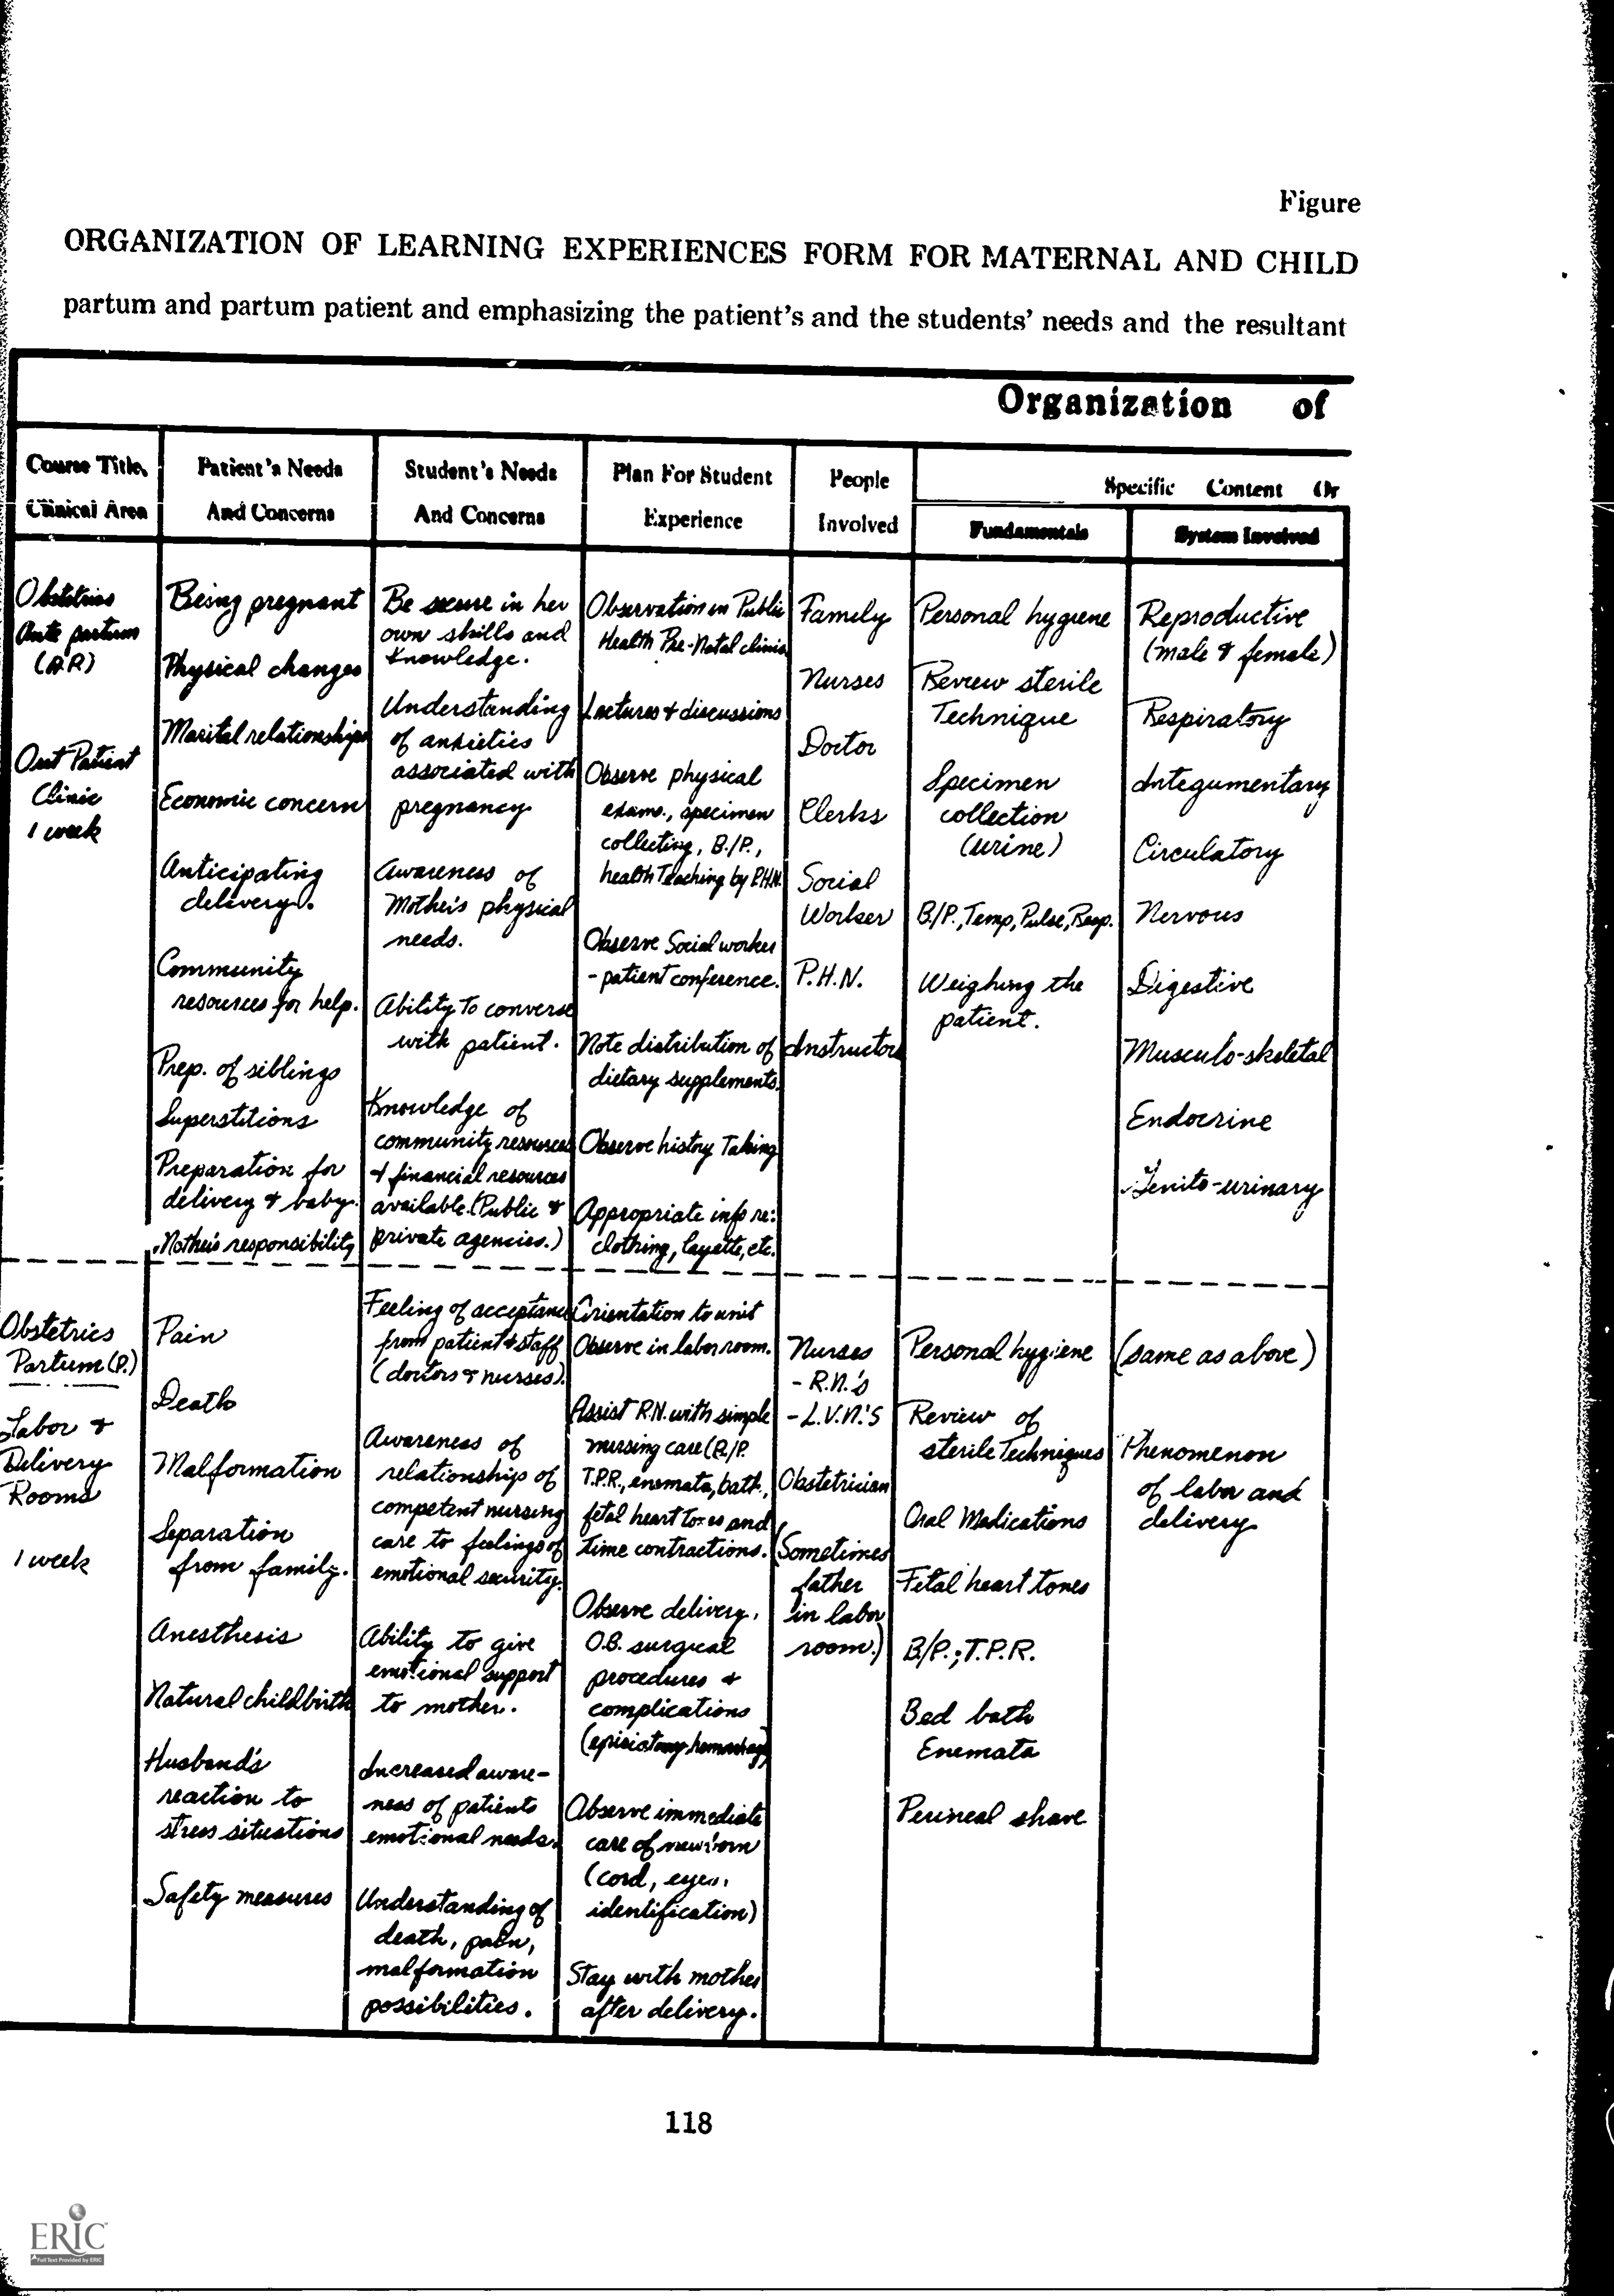 Figure
ORGANIZATION OF LEARNING EXPERIENCES FORM FOR MATERNAL AND CHILD
partum and partum patient and emphasizing the patient's and the students' needs and the resultant
Organization of
Course Title,
Clinical Area
Patient's Needs
And Concerns
Student's Needs
And Concerns
Plan For Student
Experience
People
Involved
Specific Content Or
Fundamentals
System Involved
Obstetrics
Ante partum
(A.P.)
Out Patient
Clinic
1 week
Being pregnant
Physical changes
Marital relationships
Economic concern
Anticipating
delivery.
Community
resources for help.
Prep. of siblings
Superstitions
Preparation for
delivery & baby.
Mother's responsibility
Be secure in her
own skills and
knowledge.
Understanding
of anxieties
associated with
pregnancy
Awareness of
Mother's physical
needs.
Ability to converse
with patient.
Knowledge of
community resources
& financial resources
available. (Public &
private agencies.)
Observation in Public
Health Pre-Natal clinic
Lectures & discussions
Observe physical
exams., specimen
collecting, B./P.,
health Teaching by P.H.N.
Observe Social worker
- patient conference.
Note distribution of
dietary supplements.
Observe history Taking
Appropriate info re:
clothing, layette, etc.
Family
Nurses
Doctor
Clerks
Social
Worker
P.H.N.
Instructor
Personal hygiene
Review sterile
Technique
Specimen
collection
(urine)
B/P., Temp, Pulse, Resp.
Weighing the
patient.
Reproductive
(male & female)
Respiratory
Integumentary
Circulatory
Nervous
Digestive
Musculo-skeletal
Endocrine
Genito-urinary
Obstetrics
Partum (P.)
Labor &
Delivery
Rooms
1 week
Pain
Death
Malformation
Separation
from family.
Anesthesis
Natural childbirth
Husband's
reaction to
stress situations
Safety measures
Feeling of acceptance
from patient & staff
(doctors & nurses).
Awareness of
relationships of
competent nursing
care to feelings of
emotional security.
Ability to give
emotional support
to mother.
Increased aware-
ness of patients
emotional needs.
Understanding of
death, pain,
malformation
possibilities.
Orientation to unit
Observe in labor room.
Assist R.N. with simple
nursing care (B/P.
T.P.R., enemata, bath,
fetal heart tones and
time contractions.
Observe delivery,
O.B. surgical
procedures &
complications
(episiotomy hemorrhage)
Observe immediate
care of newborn
(cord, eyes,
identification)
Stay with mother
after delivery.
Nurses
- R.N.'s
- L.V.N.'S
Obstetrician
(Sometimes
father
in labor
room.)
Personal hygiene
Review of
sterile Techniques
Oral Medications
Fetal heart tones
B/P.; T.P.R.
Bed bath
Enemata
Perineal shave
(same as above)
Phenomenon
of labor and
delivery
118
ERIC
Full Text Provided by ERIC